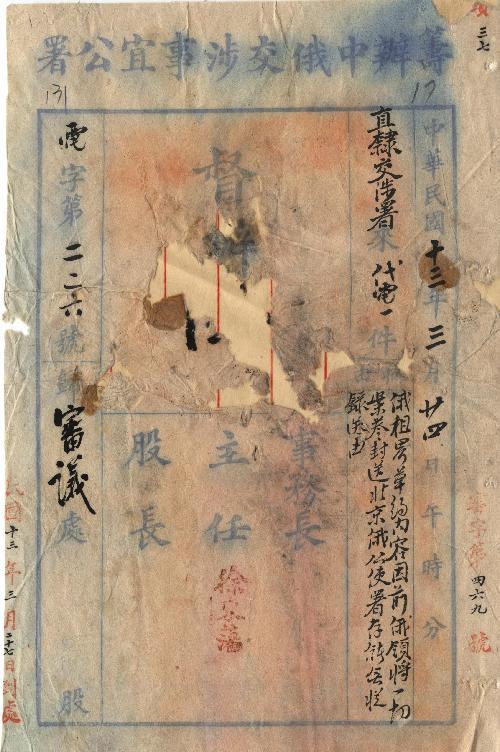 籌辦中俄交涉事宜公署
17
131
三七
中華民國十三年三月廿四日午時分
直隸交涉署來代電一件
俄租界草約內容因前俄領將一切
案卷封送北京俄公使署存儲無從
錄送由
督辦
事務長
主任
股長
電字第二二六號歸審議處
股
民國十三年三月二十七日到處
四六九號